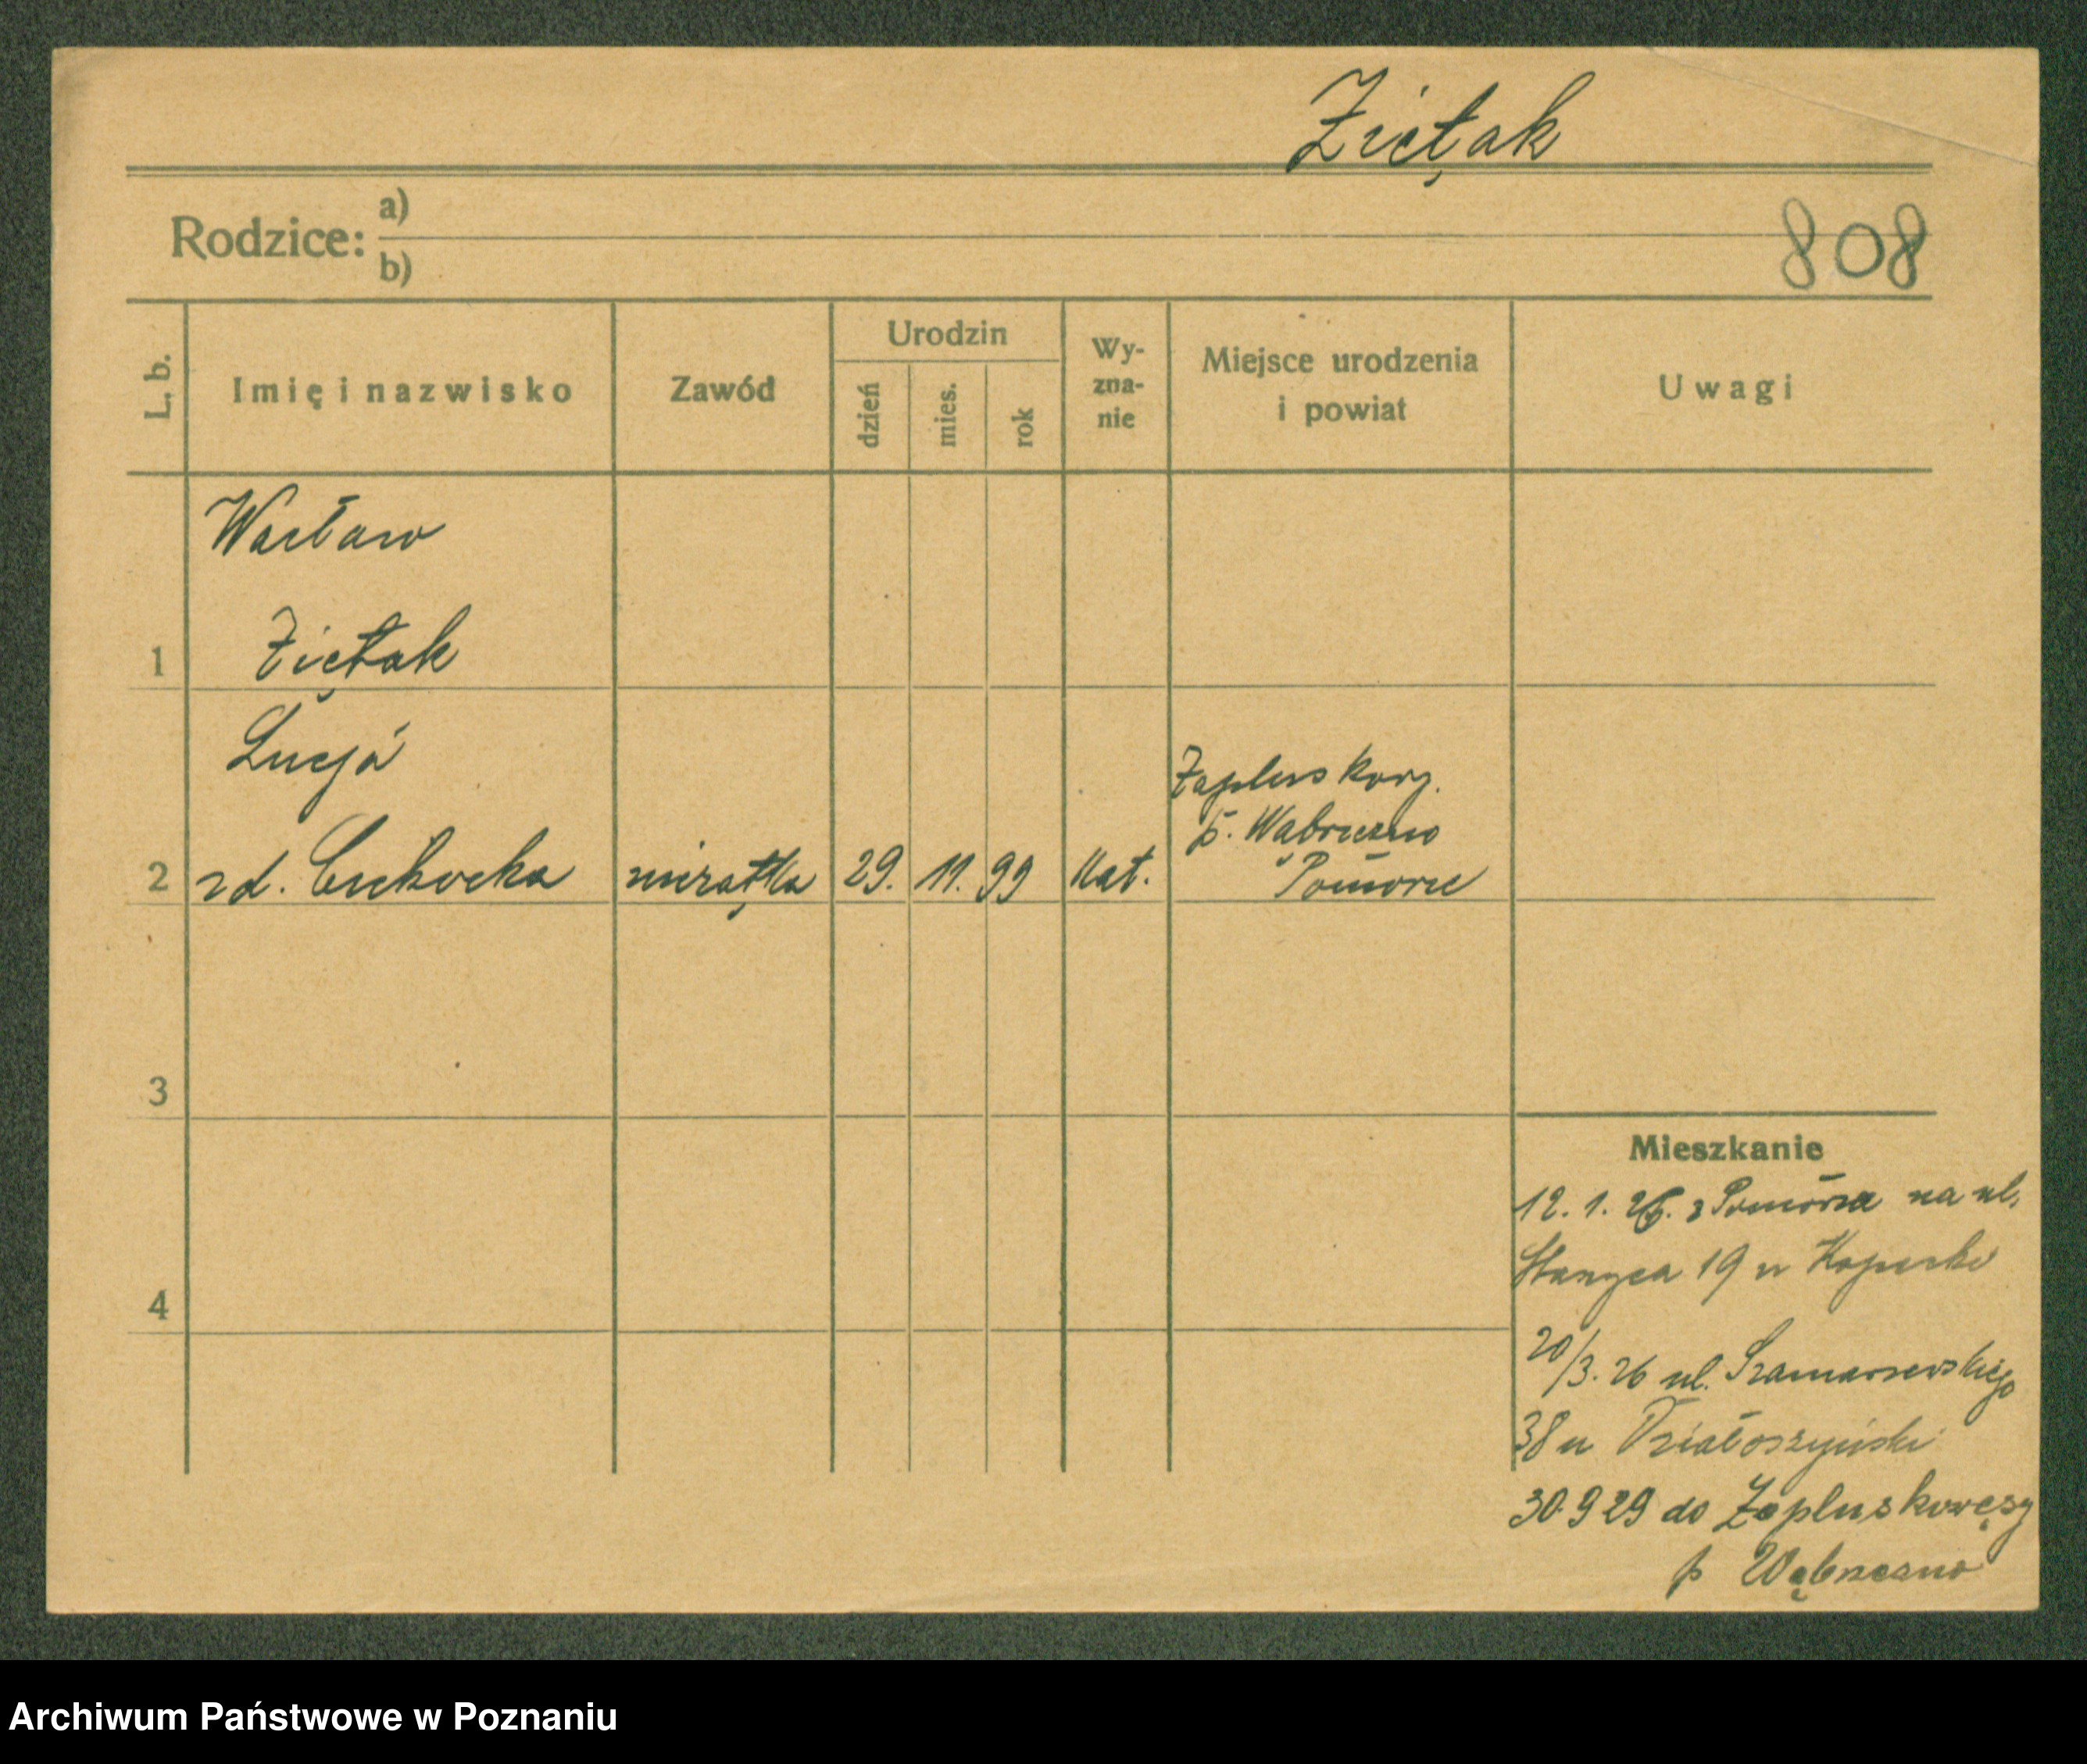 Ziętak
Rodzice: a)
b)
808
L. b.
Imię i nazwisko
Zawód
Urodzin
dzień
mies.
rok
Wy-
zna-
nie
Miejsce urodzenia
i powiat
Uwagi
Wacław
1 Ziętak
Łucja
Zapluskowę.
p. Wąbrzeźno
2 zd. Cichocka mężatka 29. 11. 99 kat. Pomorze
3
4
Mieszkanie
12. 1. 26. z Pomorza na ul.
Staszyca 19 u
20/3. 26 ul. Szamarzewskiego
38 u Działoszyński
30.9 29 do Zapluskowęsy
p Wąbrzezno
Archiwum Państwowe w Poznaniu